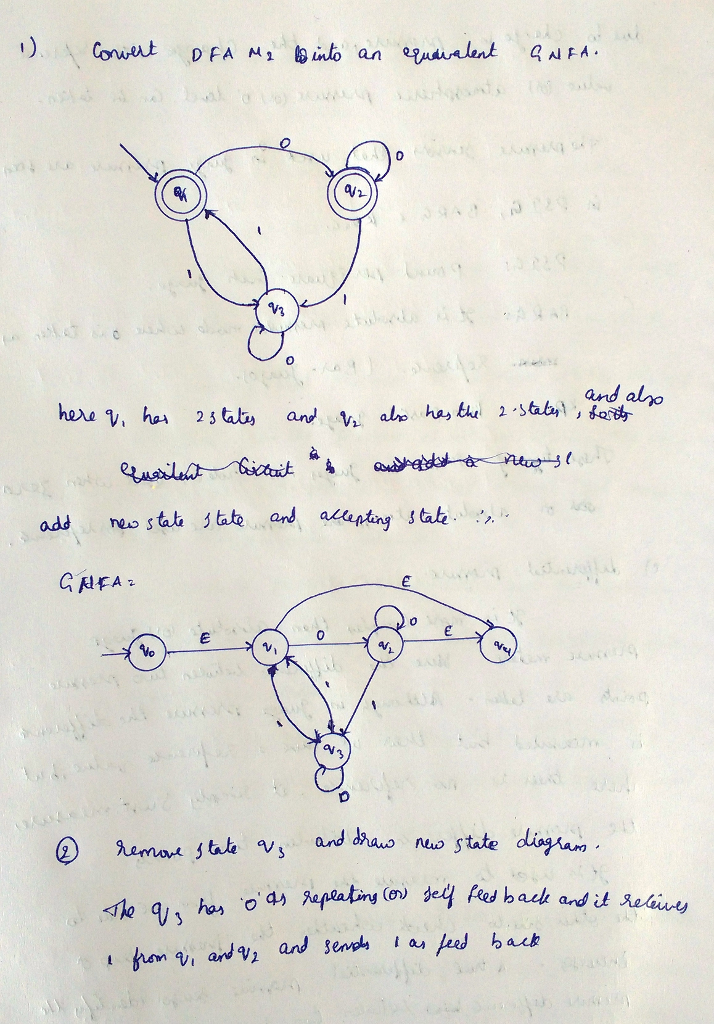 1). Convert DFA M2 into an equivalent GNFA.
0
0
q1
q2
1
1
1
q3
0
here q1 has 2 states and q2 also has the 2-states, and also
add new state state and accepting state.
GNFA=
ε
q0
ε
q1
0
q2
0
ε
q4
1
1
1
q3
0
② remove state q3 and draw new state diagram.
The q3 has '0' as repeating (or) self feed back and it receives
1 from q1 and q2 and sends 1 as feed back